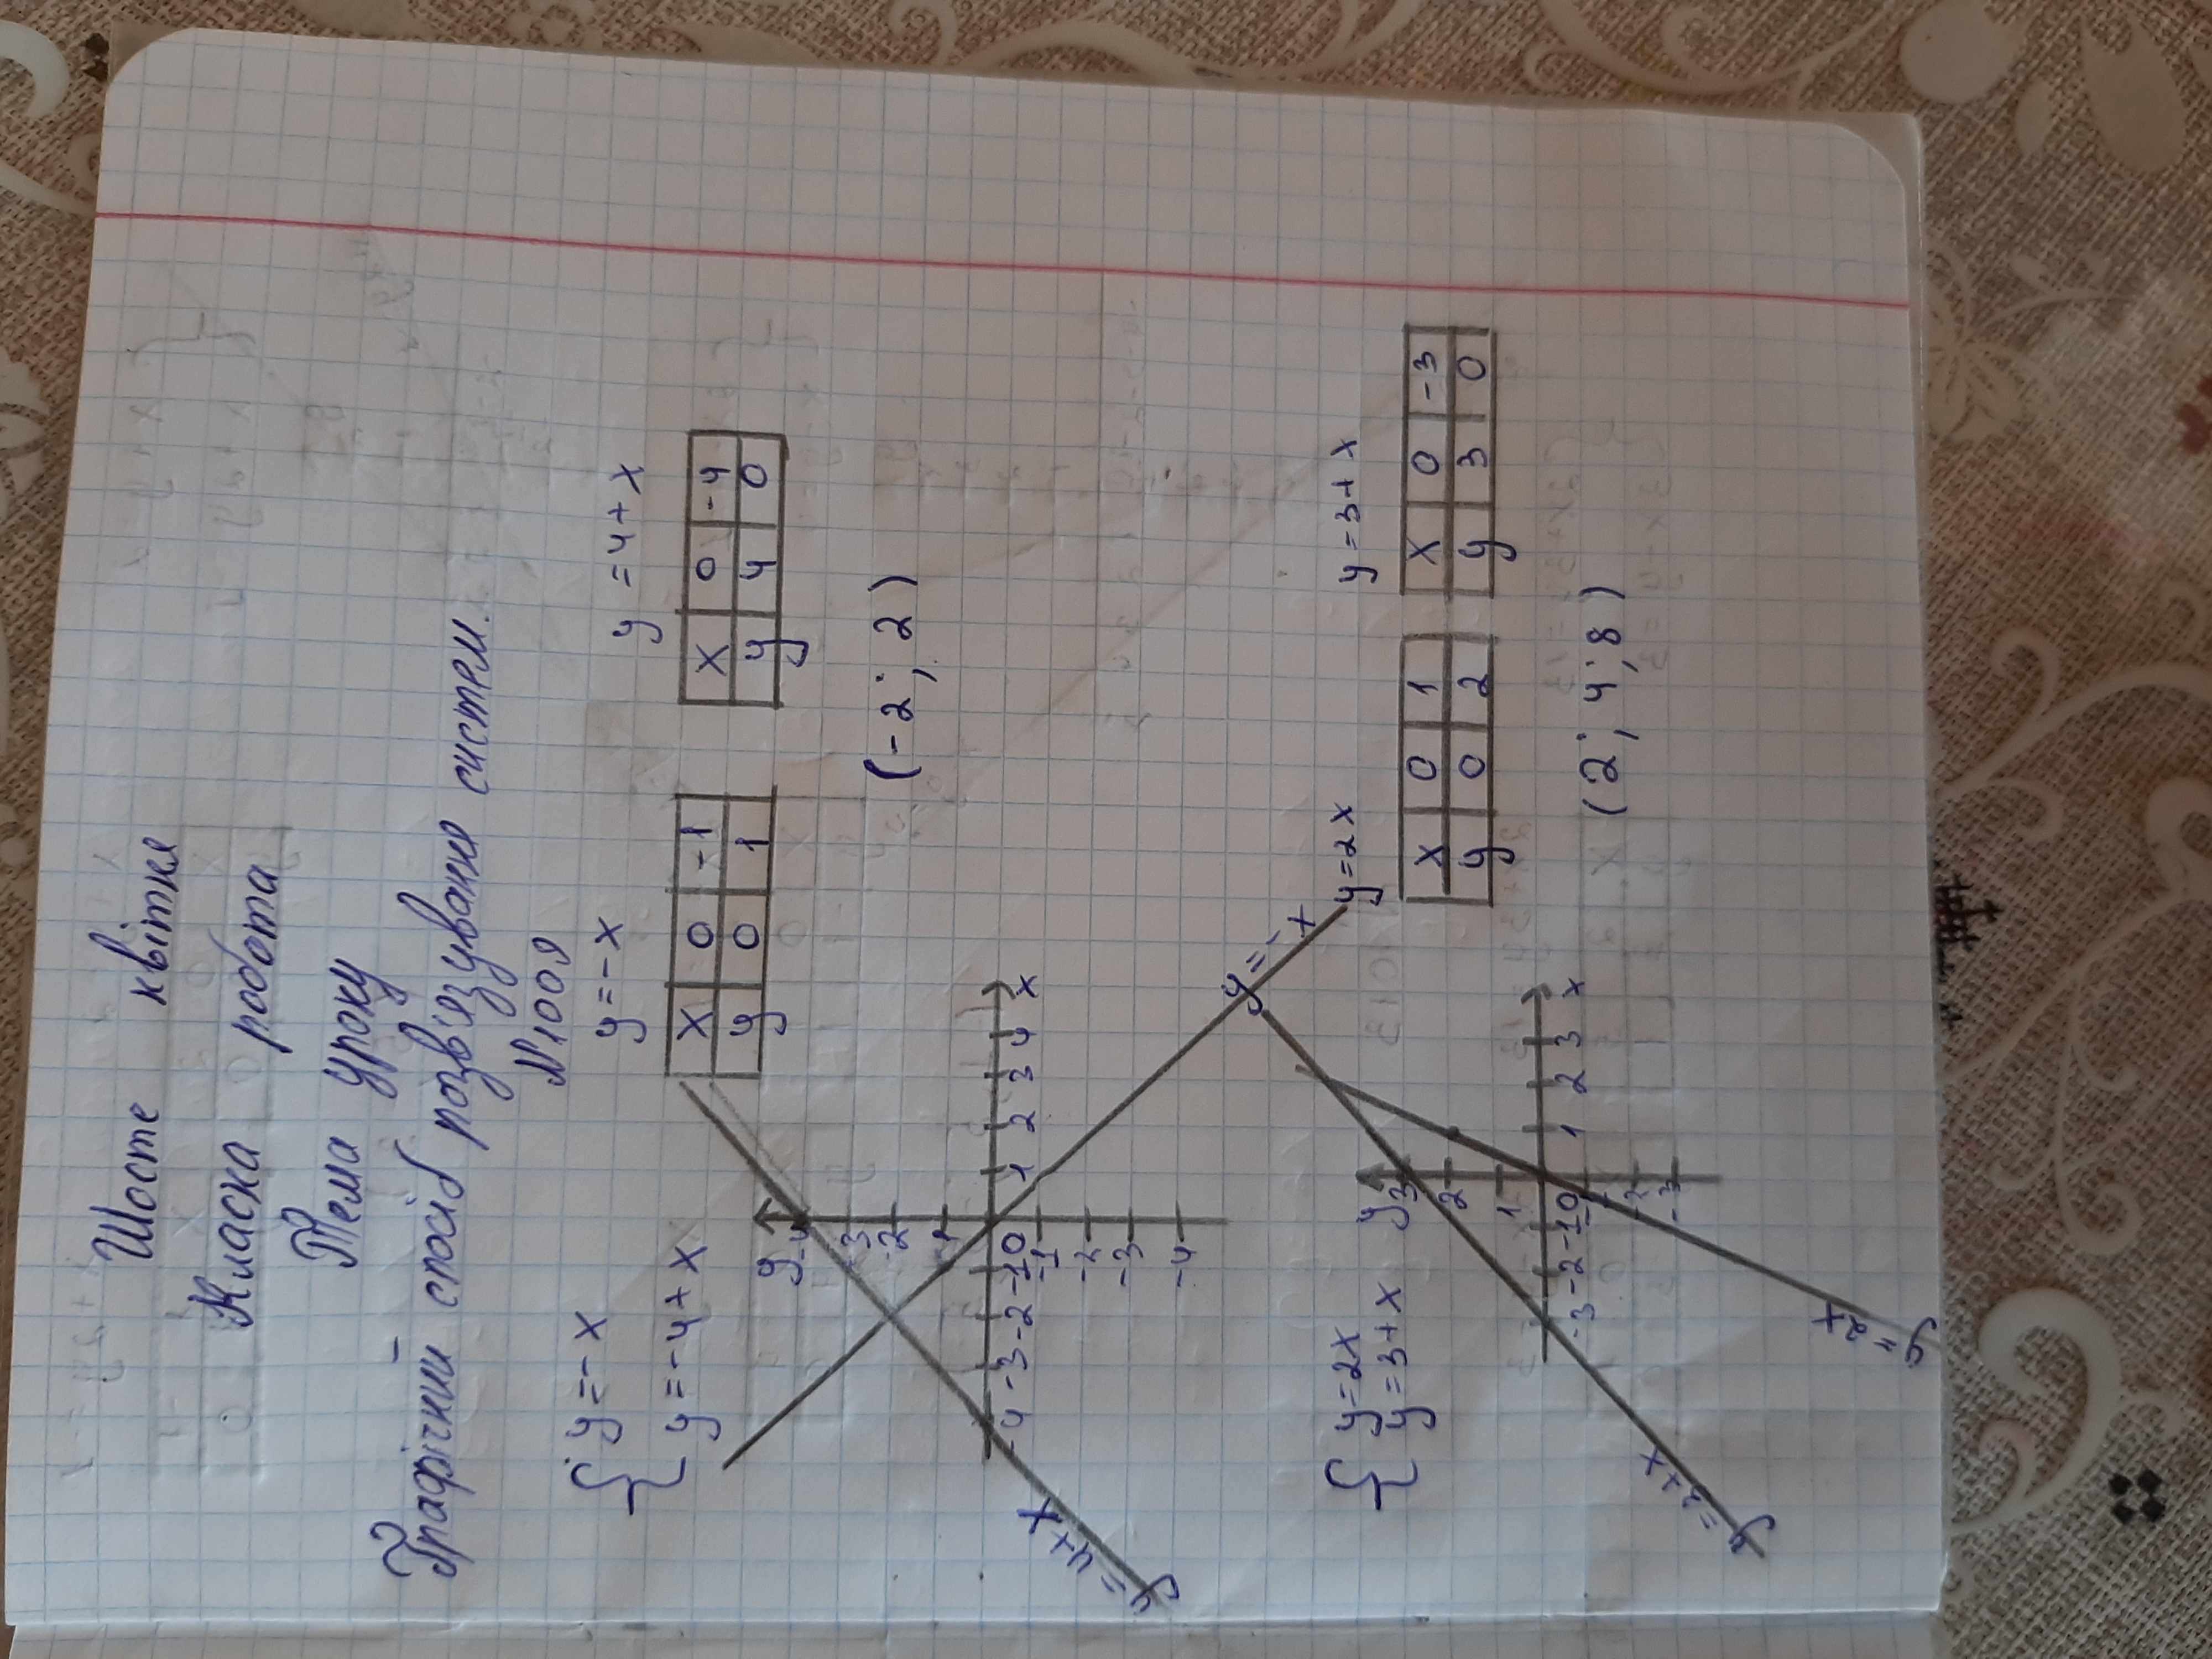 Шосте квітня
Класна робота
Тема уроку
Графічний спосіб розв'язування систем.
№1009
{ y=-x
y=-4+x
y=-x
x 0 -1
y 0 1
y=4+x
x 0 -4
y 4 0
(-2; 2)
y
4
3
2
1
-4 -3 -2 -1 0 1 2 3 4 x
-1
-2
-3
-4
y=4+x
y=-x
{ y=2x
y=3+x
y=2x
x 0 1
y 0 2
y=3+x
x 0 -3
y 3 0
(2; 4; 8)
y
3
2
1
-3 -2 -1 0 1 2 3 x
-2
-3
y=3+x
y=2x